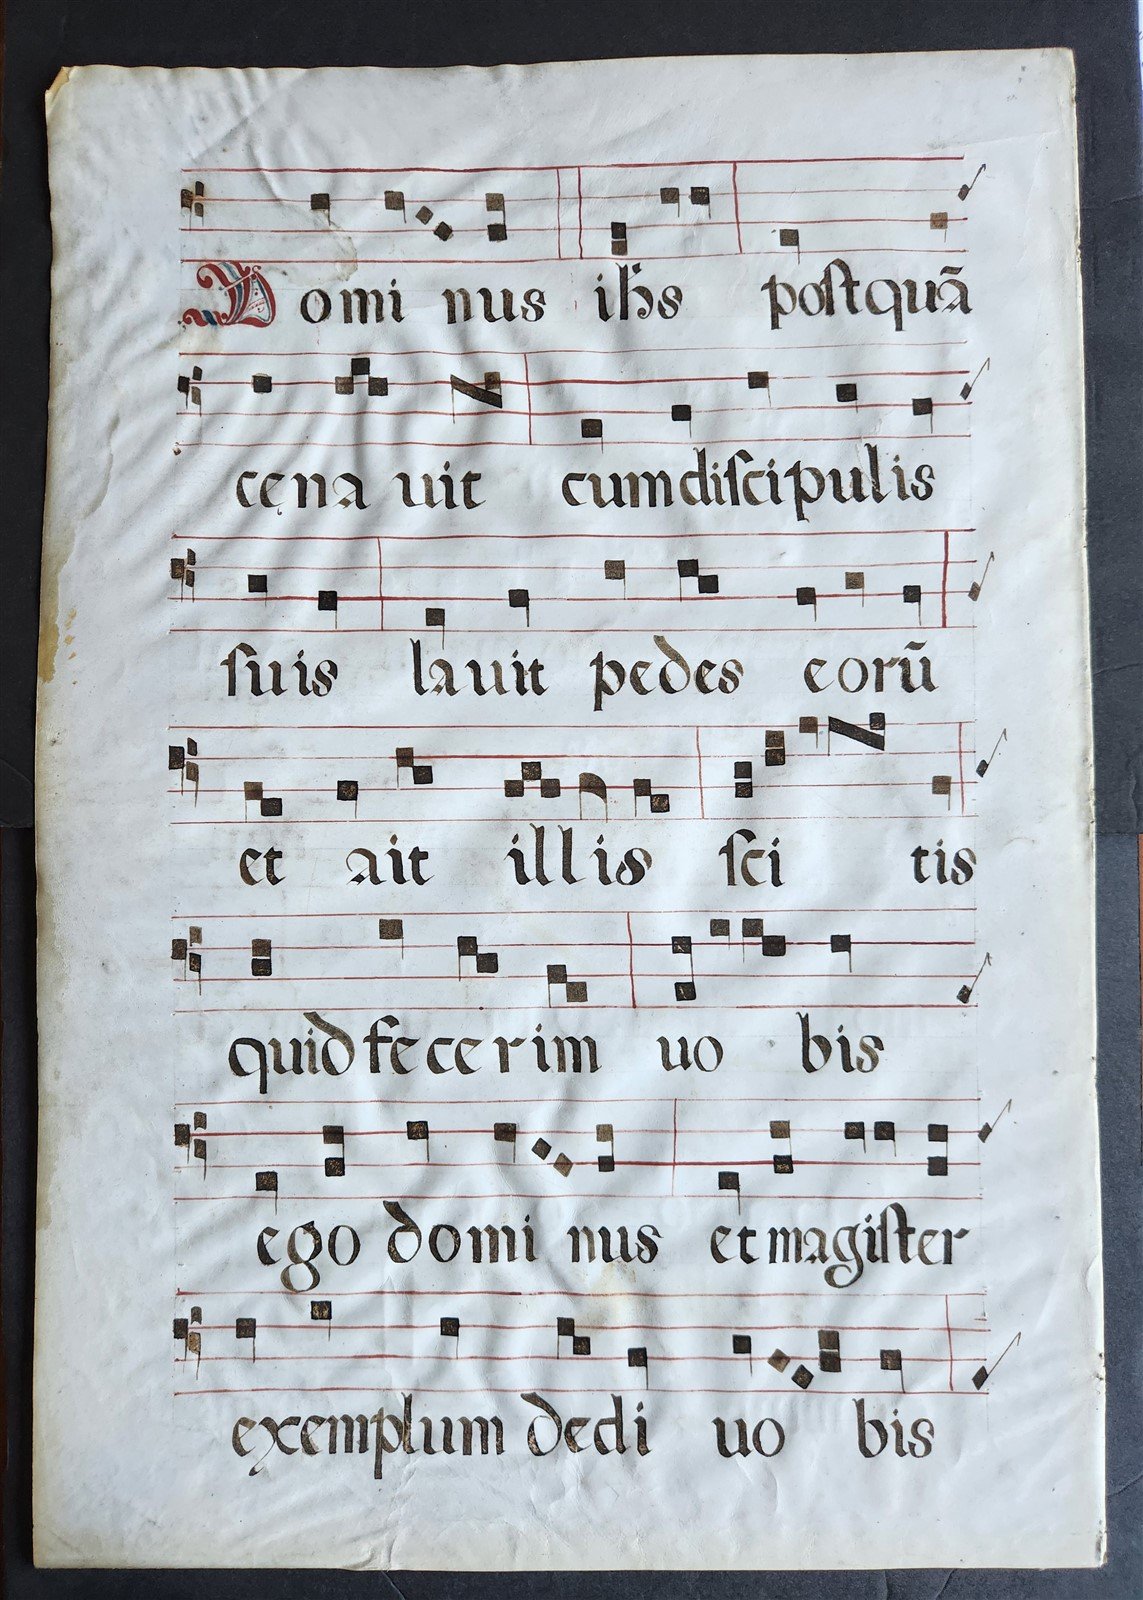 Domi nus ihs postquã
cena uit cum discipulis
suis lauit pedes eorũ
et ait illis sci tis
quid fecerim uo bis
ego domi nus et magister
exemplum dedi uo bis